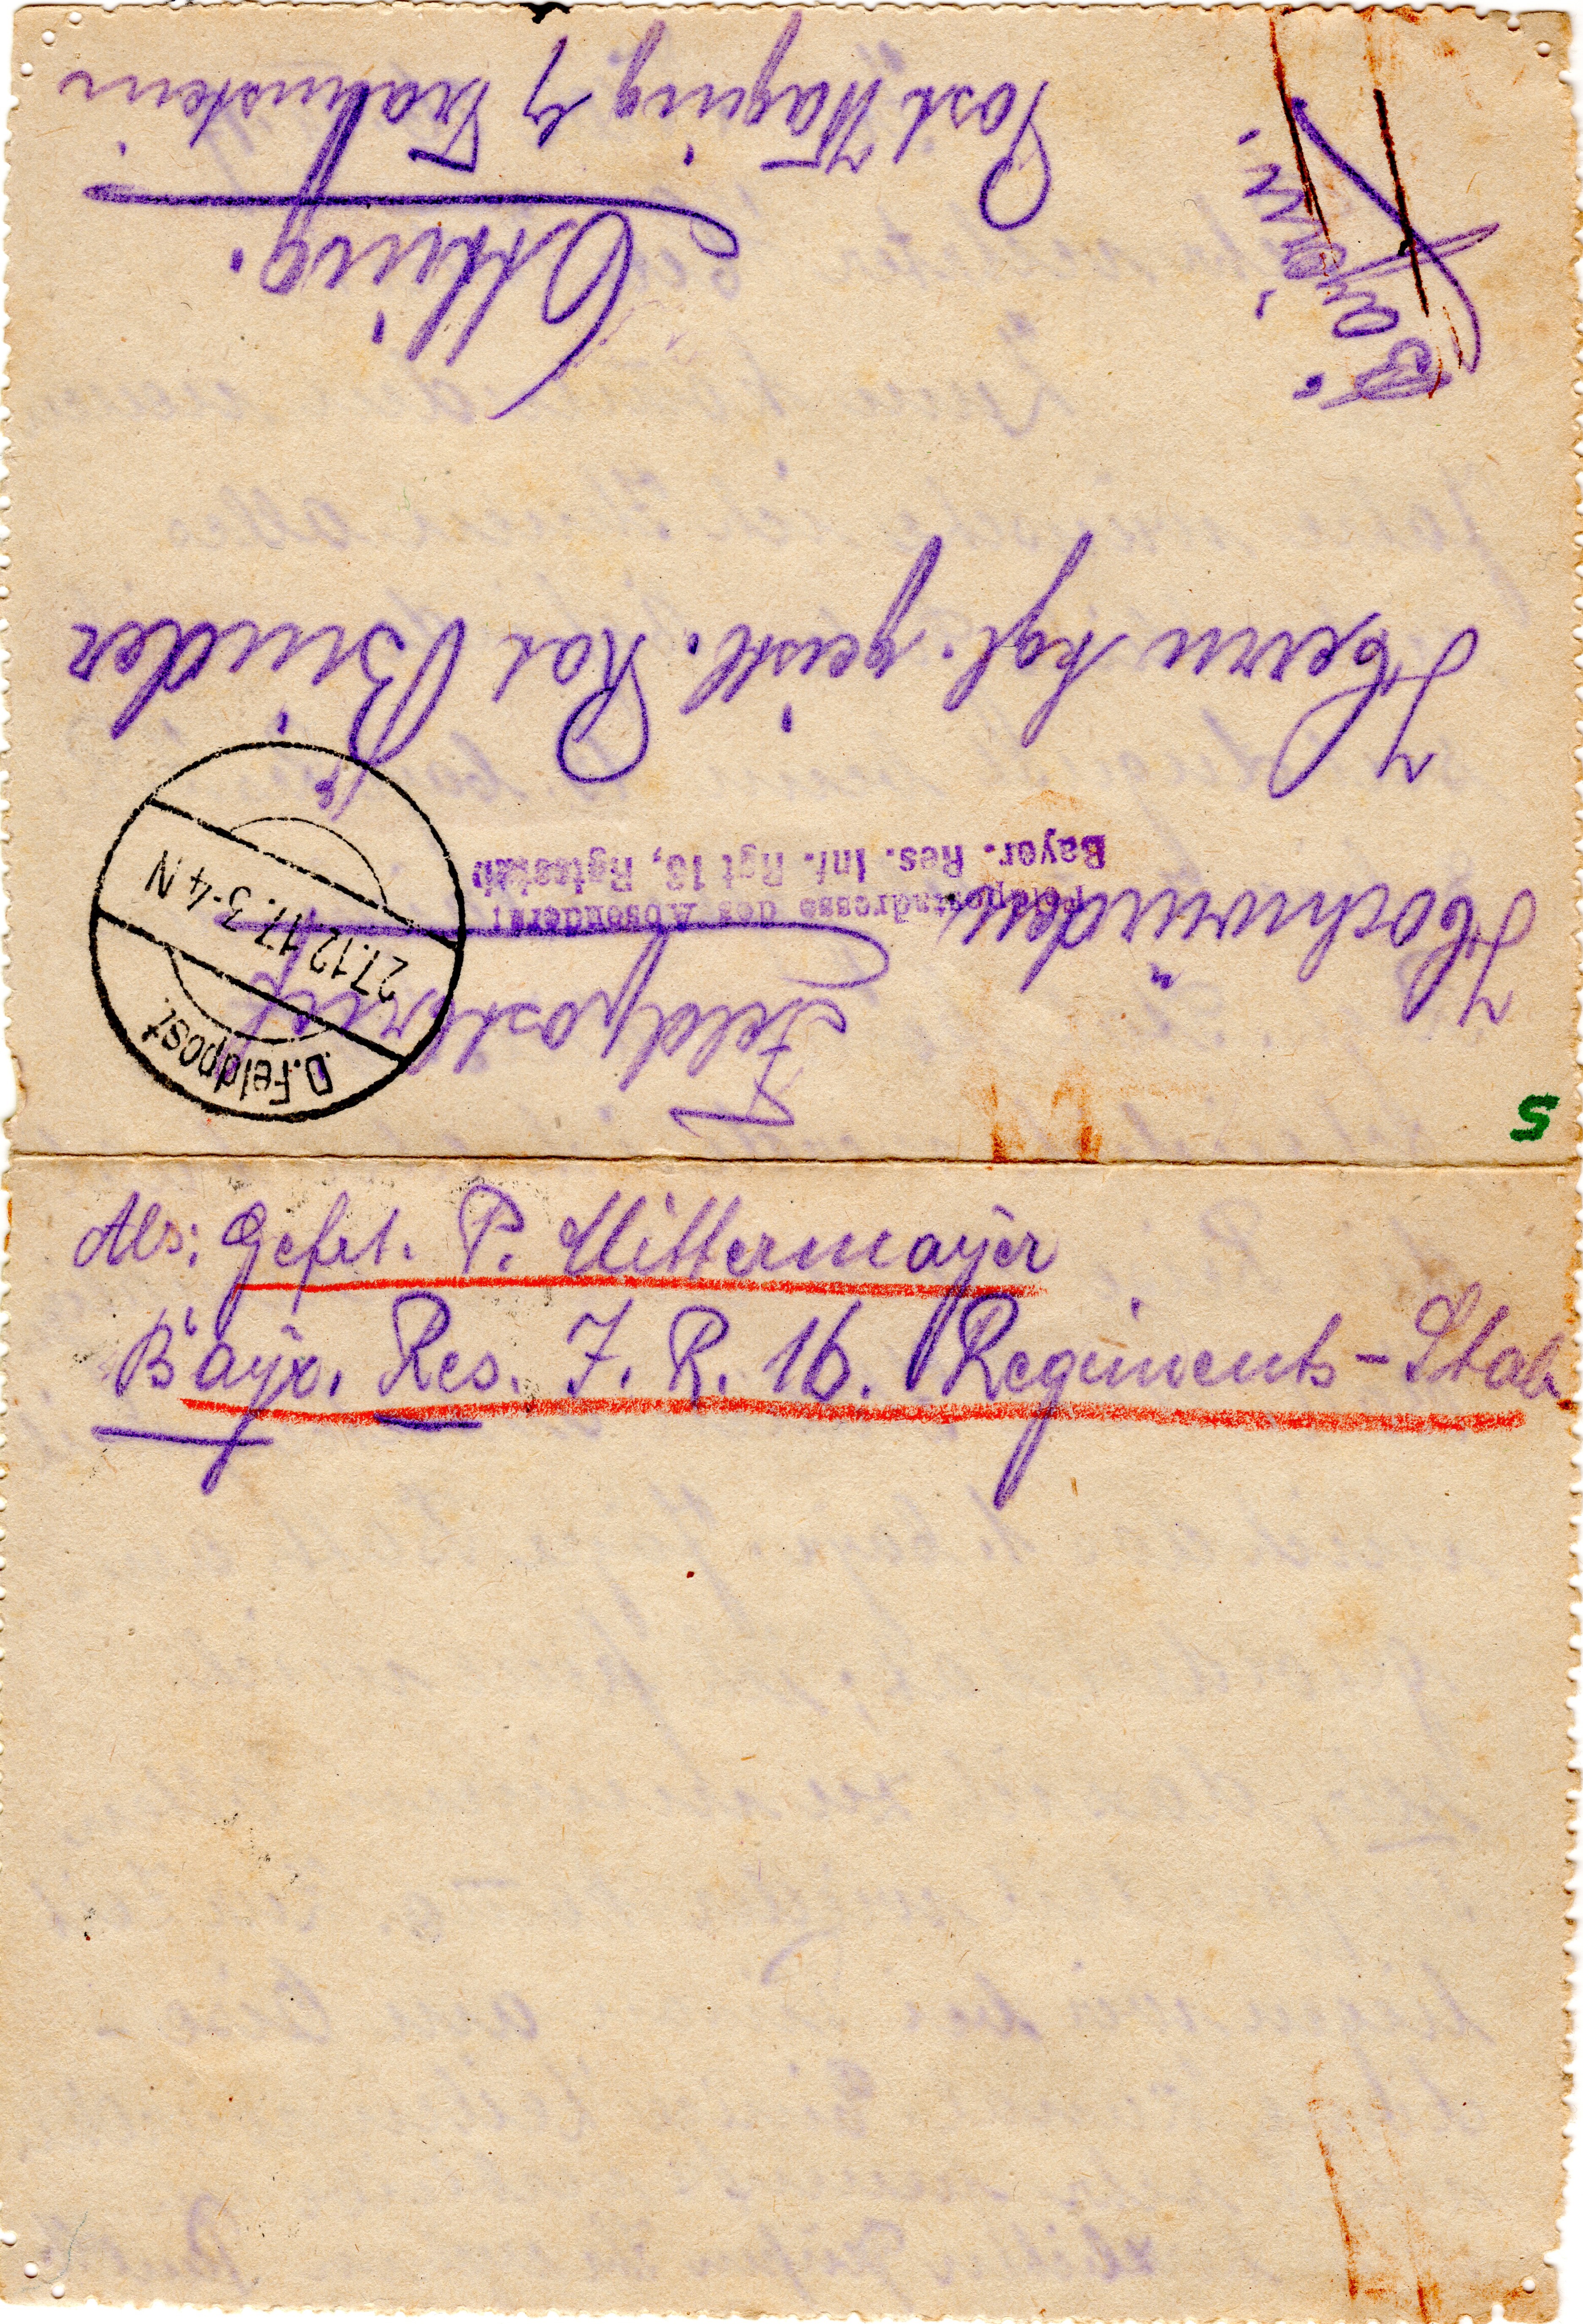 Feldpostbrief
D. Feldpost.
27.12.17. 3-4 N
Feldpostadresse des Absenders:
Bayer. Res. Inf. Rgt 16, Rgtsstab
Hochwürden
Herrn kgl. geistl. Rat Binder
Otting.
Post Waging b/ Traunstein
Bayern.
S
Abs: Gefrt. P. Mittermayer
Bayr. Res. I. R. 16. Regiments-Stab